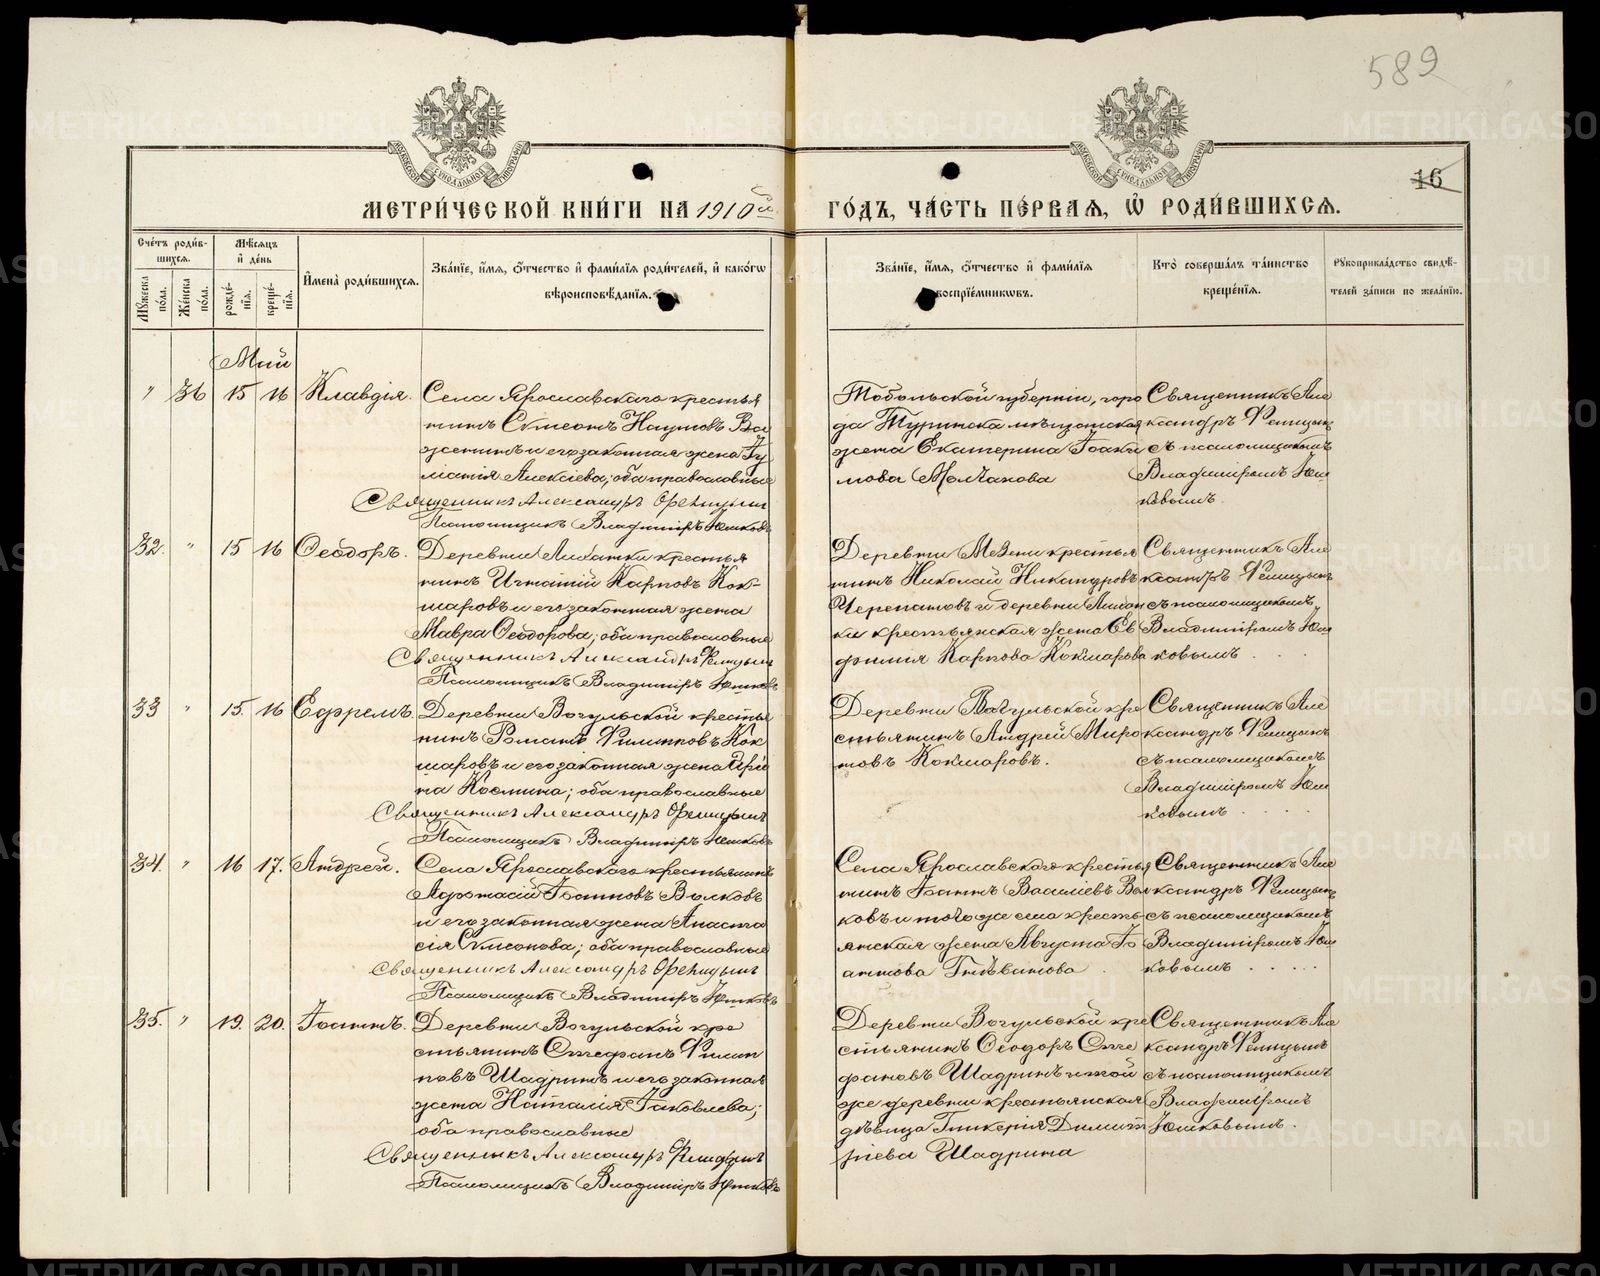 589
16
МЕТРИ́ЧЕСКОЙ КНИ́ГИ НА 1910й
ГО́ДЪ, ЧА́СТЬ ПЕ́РВАЯ, Ѡ҆ РОДИ́ВШИХСЯ.
Сче́тъ роди́в-
шихся.
Му́жеска по́ла.
Же́нска по́ла.
Мѣ́сяцъ
и҆ де́нь
рожде́-
нїя.
креще́-
нїя.
И҆мена̀ роди́вшихся.
Зва́нїе, и҆́мя, ѻ҆́тчество и҆ фами́лїя роди́телей, и҆ како́гѡ
вѣроисповѣ́данїя.
Зва́нїе, и҆́мя, ѻ҆́тчество и҆ фами́лїя
воспрїе́мниковъ.
Кто̀ соверша́лъ та́инство
креще́нїя.
Рукоприкла́дство свидѣ́-
телей за́писи по жела́нїю.
Май
" 36 15 16 Клавдія.
Села Ярославскаго кресть
янинъ Симеонъ Наумовъ Ва
женинъ и его законная жена Іу
ліанія Алексіева; оба православные
Священникъ Александръ Фелицынъ
Псаломщикъ Владиміръ Юшковъ
Тобольской губерніи, горо
да Туринска мѣщанская
жена Екатерина Іоаки
мова Молчанова
Священникъ Але
ксандръ Фелицынъ
съ псаломщикомъ
Владиміромъ Юш
ковымъ.
32. " 15 16 Ѳеодоръ.
Деревни Липатки кресть
янинъ Игнатій Карповъ Кок-
шаровъ и его законная жена
Мавра Ѳеодорова; оба православные
Священникъ Александръ Фелицынъ
Псаломщикъ Владиміръ Юшковъ
Деревни Мезени крестья
нинъ Николай Никандровъ
Черепановъ и деревни Липат
ки крестьянская жена Ев
фимія Карпова Кокшарова
Священникъ Але
ксандръ Фелицынъ
съ псаломщикомъ
Владиміромъ Юш
ковымъ
33 " 15. 16 Ефремъ.
Деревни Вогульской крестья
нинъ Романъ Филипповъ Кок
шаровъ и его законная жена Ири
на Космина; оба православные
Священникъ Александръ Фелицынъ
Псаломщикъ Владиміръ Юшковъ
Деревни Вогульской кре
стьянинъ Андрей Миро
новъ Кокшаровъ.
Священникъ Але
ксандръ Фелицынъ
съ псаломщикомъ
Владиміромъ Юш
ковымъ
34. " 16 17. Андрей.
Села Ярославскаго крестьянинъ
Афонасій Іоанновъ Волковъ
и его законная жена Анаста
сія Симеонова; оба православные
Священникъ Александръ Фелицынъ
Псаломщикъ Владиміръ Юшковъ
Села Ярославскаго кресть
янинъ Іоаннъ Василіевъ Вол
ковъ и того же села кресть
янская жена Августа Іо
аннова Гнѣванова
Священникъ Але
ксандръ Фелицынъ
съ псаломщикомъ
Владиміромъ Юш
ковымъ
35. " 19. 20. Іоаннъ.
Деревни Вогульской кре
стьянинъ Стефанъ Филип
повъ Шадринъ и его законная
жена Наталія Іаковлева;
оба православные
Священникъ Александръ Фелицынъ
Псаломщикъ Владиміръ Юшковъ
Деревни Вогульской кре
стьянинъ Ѳеодоръ Сте
фановъ Шадринъ и той
же деревни крестьянская
дѣвица Гликерія Димит
ріева Шадрина
Священникъ Але
ксандръ Фелицынъ
съ псаломщикомъ
Владиміромъ
Юшковымъ.
METRIKI.GASO-URAL.RU